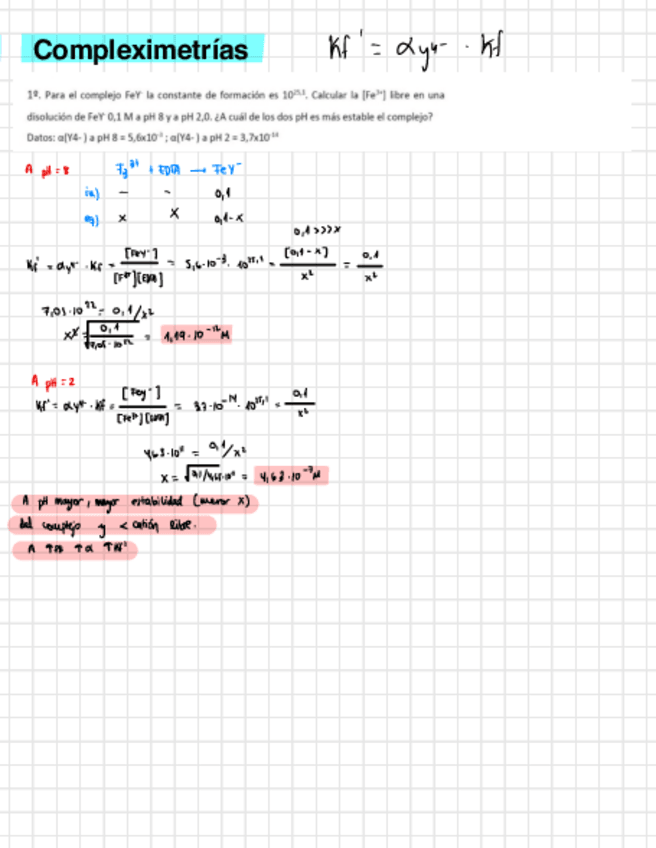 Compleximetrías
Kf' = αy⁴⁻ · Kf
1º. Para el complejo FeY⁻ la constante de formación es 10²⁵·¹. Calcular la [Fe³⁺] libre en una
disolución de FeY⁻ 0,1 M a pH 8 y a pH 2,0. ¿A cuál de los dos pH es más estable el complejo?
Datos: α(Y4-) a pH 8 = 5,6x10⁻³ ; α(Y4-) a pH 2 = 3,7x10⁻¹⁴
A pH = 8
Fe³⁺ + EDTA → FeY⁻
in) - - 0,1
eq) x x 0,1-x
0,1>>>x
Kf' = αy⁴⁻ · Kf = [FeY⁻] / [Fe³⁺][EDTA] = 5,6·10⁻³ · 10²⁵·¹ = [0,1-x] / x² = 0,1 / x²
7,05·10²² = 0,1/x²
x = √0,1 / 7,05·10²² = 1,19·10⁻¹² M
A pH = 2
Kf' = αy⁴⁻ · Kf = [FeY⁻] / [Fe³⁺][EDTA] = 3,7·10⁻¹⁴ · 10²⁵·¹ = 0,1 / x²
= 0,1/x²
x = = 4,63·10⁻⁷ M
A pH mayor, mayor estabilidad (menor x)
del complejo y < catión libre.
A ↑pH ↑α ↑Kf'